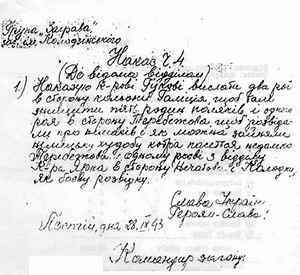 Група "Заграва"
загін ім. Колодзінського
Наказ Ч. 4
(До відома відділам)
1) Наказую к-рові Гукові вислати два рої
в сторону кольонії Галіція щоб там
знищити пять родин поляків і одного
роя в сторону щоб розвідати
про німаків і як можна зайняти
німецьку худобу котра пасеться недалеко
і одному роєві з відділу
К-ра Ярка в сторону і Колодки,
як боєву розвідку.
Слава Україні
Героям-Слава!
Постій, дня 28.IV.43
Командир загону.